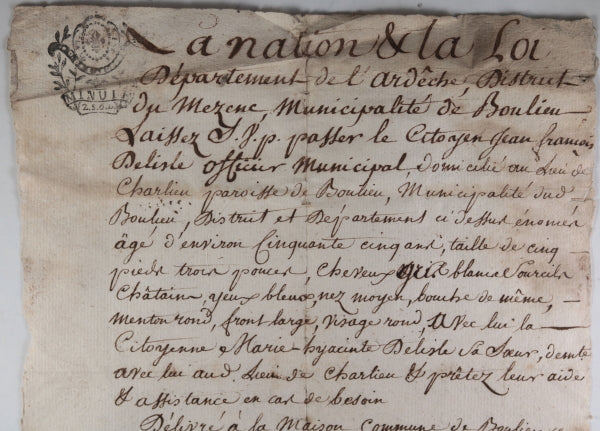 La nation & la Loi
MINUIT
2. S. 6. D.
Département de l'ardêche, District
du Mezenc, Municipalité de Boulieu
Laissez S. V. p. passer le Citoyen Jean françois
Delisle officier Municipal, domicilié au Lieu de
Charlieu paroisse de Boulieu, Municipalité dud.
Boulieu, District et Département ci dessus énomés
âgé d'environ Cinquante cinq ans, taille de cinq
pieds trois pouces, cheveux gris blancs Sourcils
Châtains, yeux bleus, nez moyen, bouche de même,
menton rond, front large, visage rond, Avec lui la
Citoyenne Marie hyacinte Delisle sa Sœur, demte
avec lui aud. Lieu de Charlieu & prêtez leur aide
& assistance en cas de besoin
Délivré à la Maison Commune de Boulieu